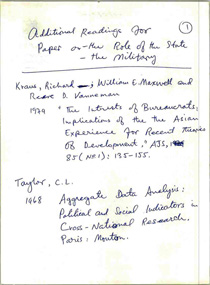 1
Additional Readings for
Paper on the Role of the State
– the Military
Kraus, Richard; William E. Maxwell and
Reeve D. Vanneman
1979 "The Interests of Bureaucrats:
Implications of the the Asian
Experience for Recent Theories
of Development," AJS,
85 (No. 1): 135-155.
Taylor, C.L.
1968 Aggregate Data Analysis:
Political and Social Indicators in
Cross-National Research.
Paris: Mouton.